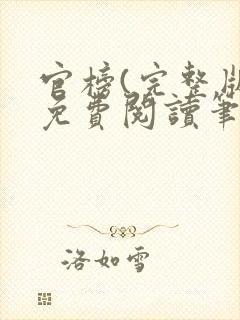 官榜(完整版
免費閱讀筆
洛如雪